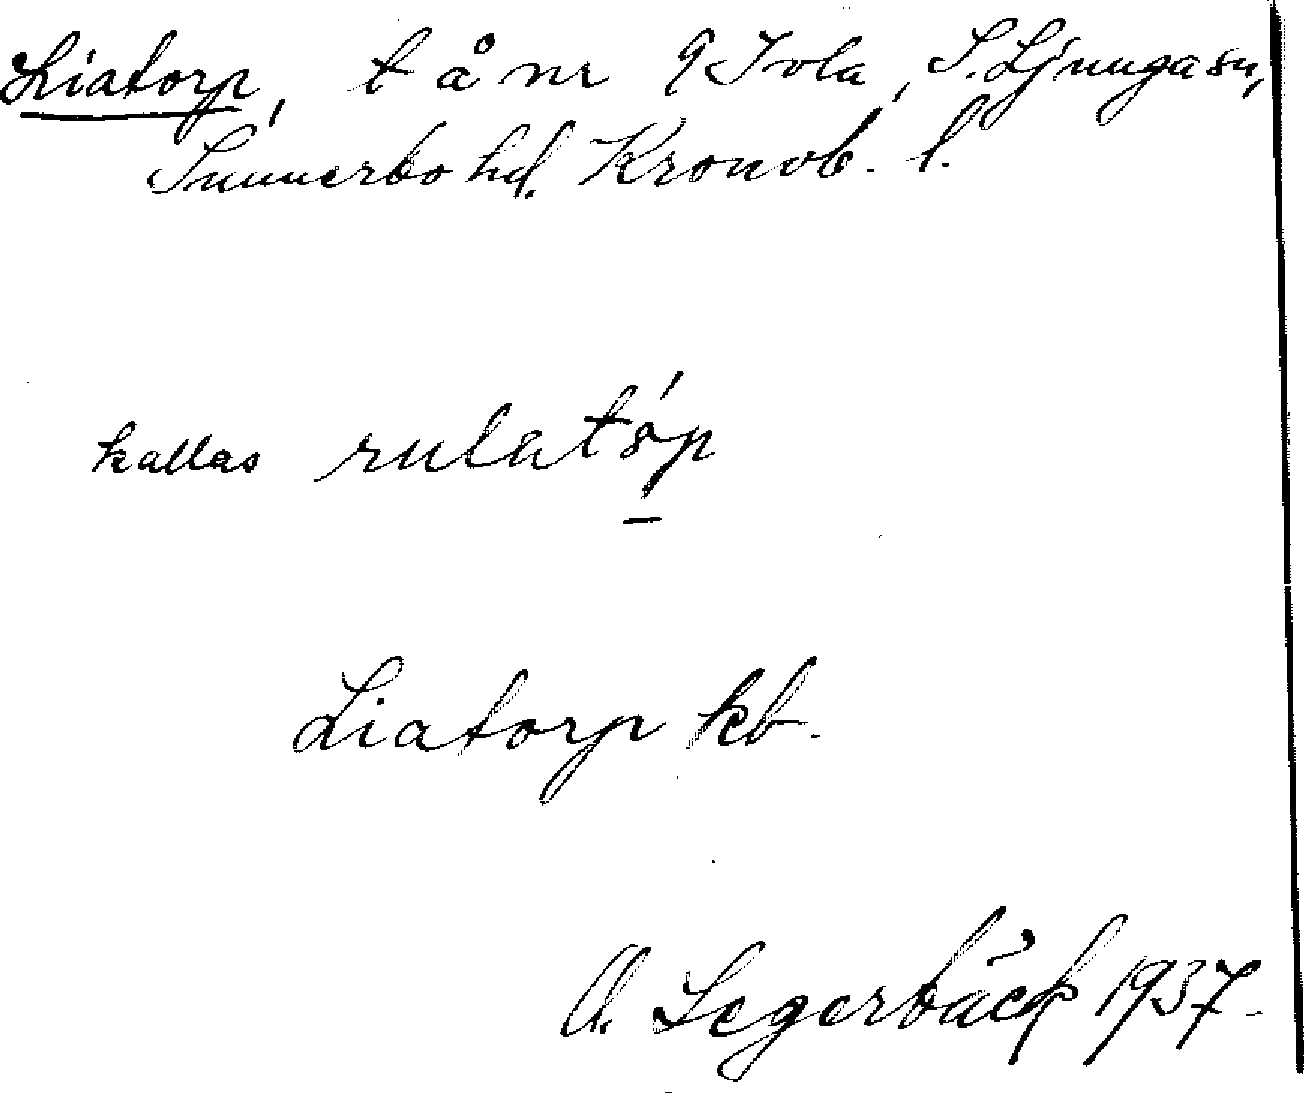 Liatorp, t å nr 9 Ivla, S. Ljunga sn,
Sunnerbo hd. Kronob. l.
kallas rulatóp
Liatorp kb.
A. Segerbäck 1937.